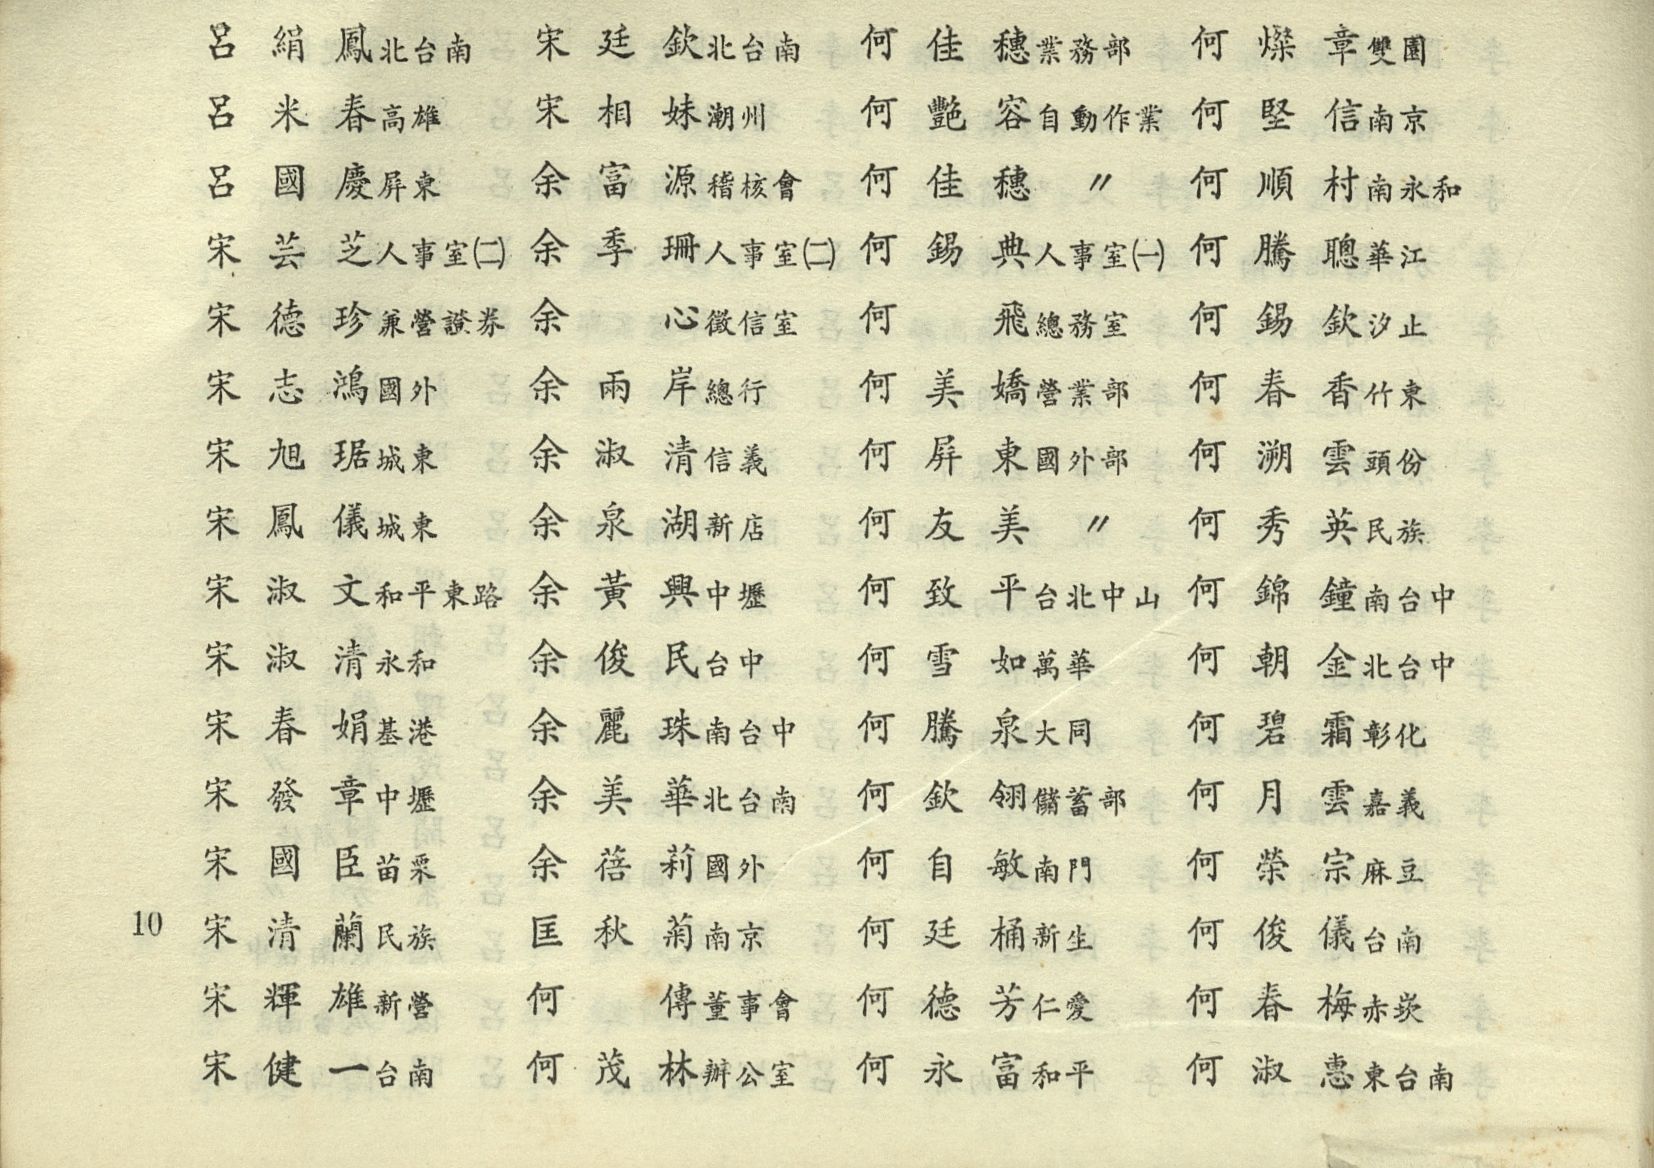 呂絹鳳北台南 宋廷欽北台南 何佳穗業務部 何燦章雙園
呂米春高雄 宋相妹潮州 何艷容自動作業 何堅信南京
呂國慶屏東 余富源稽核會 何佳穗〃 何順村南永和
宋芸芝人事室㈡ 余季珊人事室㈡ 何錫典人事室㈠ 何騰聰華江
宋德珍兼營證券 余心徵信室 何飛總務室 何錫欽汐止
宋志鴻國外 余兩岸總行 何美嬌營業部 何春香竹東
宋旭琚城東 余淑清信義 何屏東國外部 何溯雲頭份
宋鳳儀城東 余泉湖新店 何友美〃 何秀英民族
宋淑文和平東路 余黃興中壢 何致平台北中山 何錦鐘南台中
宋淑清永和 余俊民台中 何雪如萬華 何朝金北台中
宋春娟基港 余麗珠南台中 何騰泉大同 何碧霜彰化
宋發章中壢 余美華北台南 何欽翎儲蓄部 何月雲嘉義
宋國臣苗栗 余蓓莉國外 何自敏南門 何榮宗麻豆
宋清蘭民族 匡秋菊南京 何廷桶新生 何俊儀台南
宋輝雄新營 何傳董事會 何德芳仁愛 何春梅赤崁
宋健一台南 何茂林辦公室 何永富和平 何淑惠東台南
10